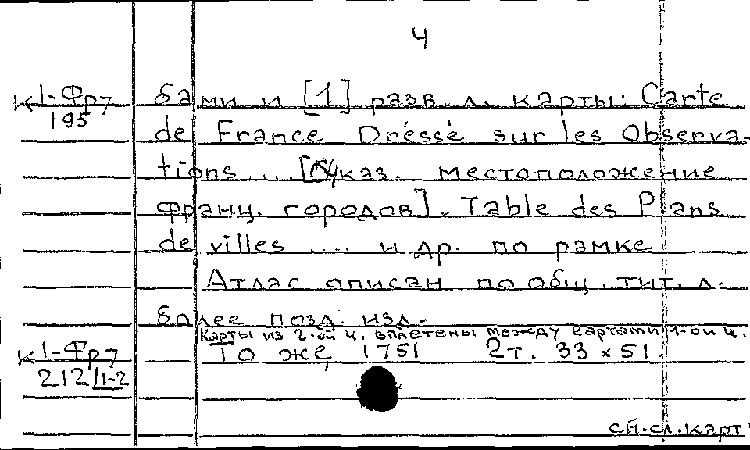 4
К1-Фр7
195
бами и [1] разв. л. карты: Carte
de France Dréssé sur les Observa-
tions... [Указ. местоположение
франц. городов]. Table des Plans
de villes .... и др. по рамке
Атлас описан по общ. тит. л.
более позд. изд.
Карты из 2-ой ч. вплетены между картами 1-ой ч.
К1-Фр7
212/1-2
То же 1751 2т. 33 x 51.
сл. карт